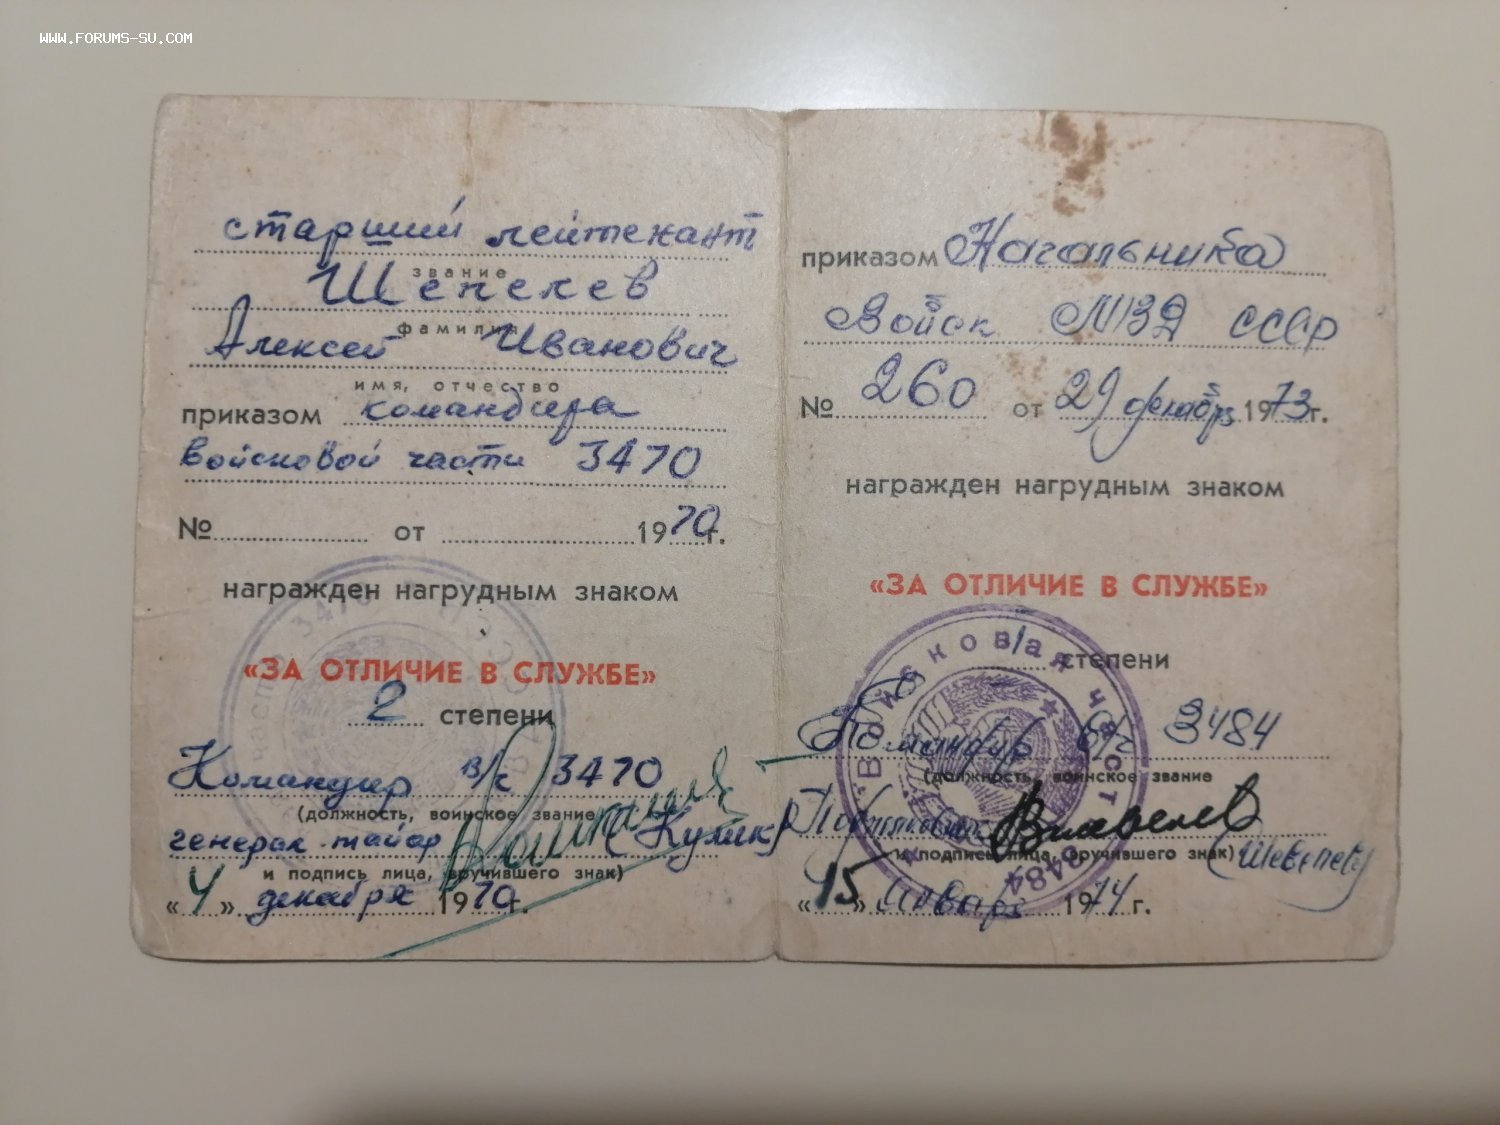 WWW.FORUMS-SU.COM
старший лейтенант
звание
Шенекев
фамилия
Алексей Иванович
имя, отчество
приказом командира
войсковой части 3470
№ от 1970г.
награжден нагрудным знаком
«ЗА ОТЛИЧИЕ В СЛУЖБЕ»
2 степени
Командир в/ч 3470
(должность, воинское звание
генерал-майор (Кулик)
и подпись лица, вручившего знак)
«4» декабря 1970г.
приказом Начальника
Войск МВД СССР
№ 260 от 29 декабря 1973г.
награжден нагрудным знаком
«ЗА ОТЛИЧИЕ В СЛУЖБЕ»
степени
Командир в/ч 3484
(должность, воинское звание
Подполковник
и подпись лица, вручившего знак)
«15» января 1974г.
Войсковая часть 3484